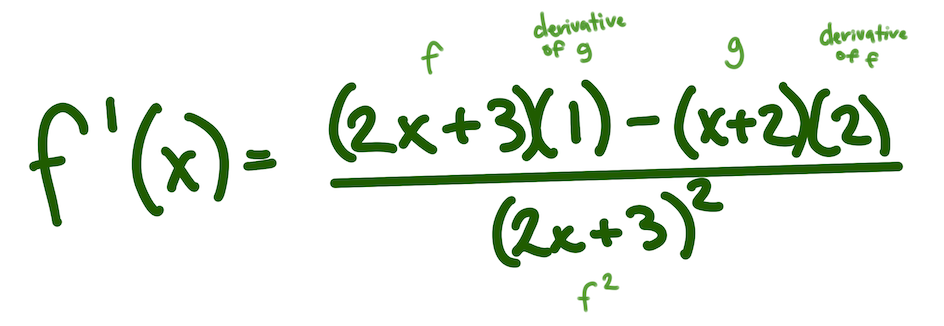 f derivative of g g derivative of f
f'(x) = (2x+3)(1) - (x+2)(2)
(2x+3)²
f²